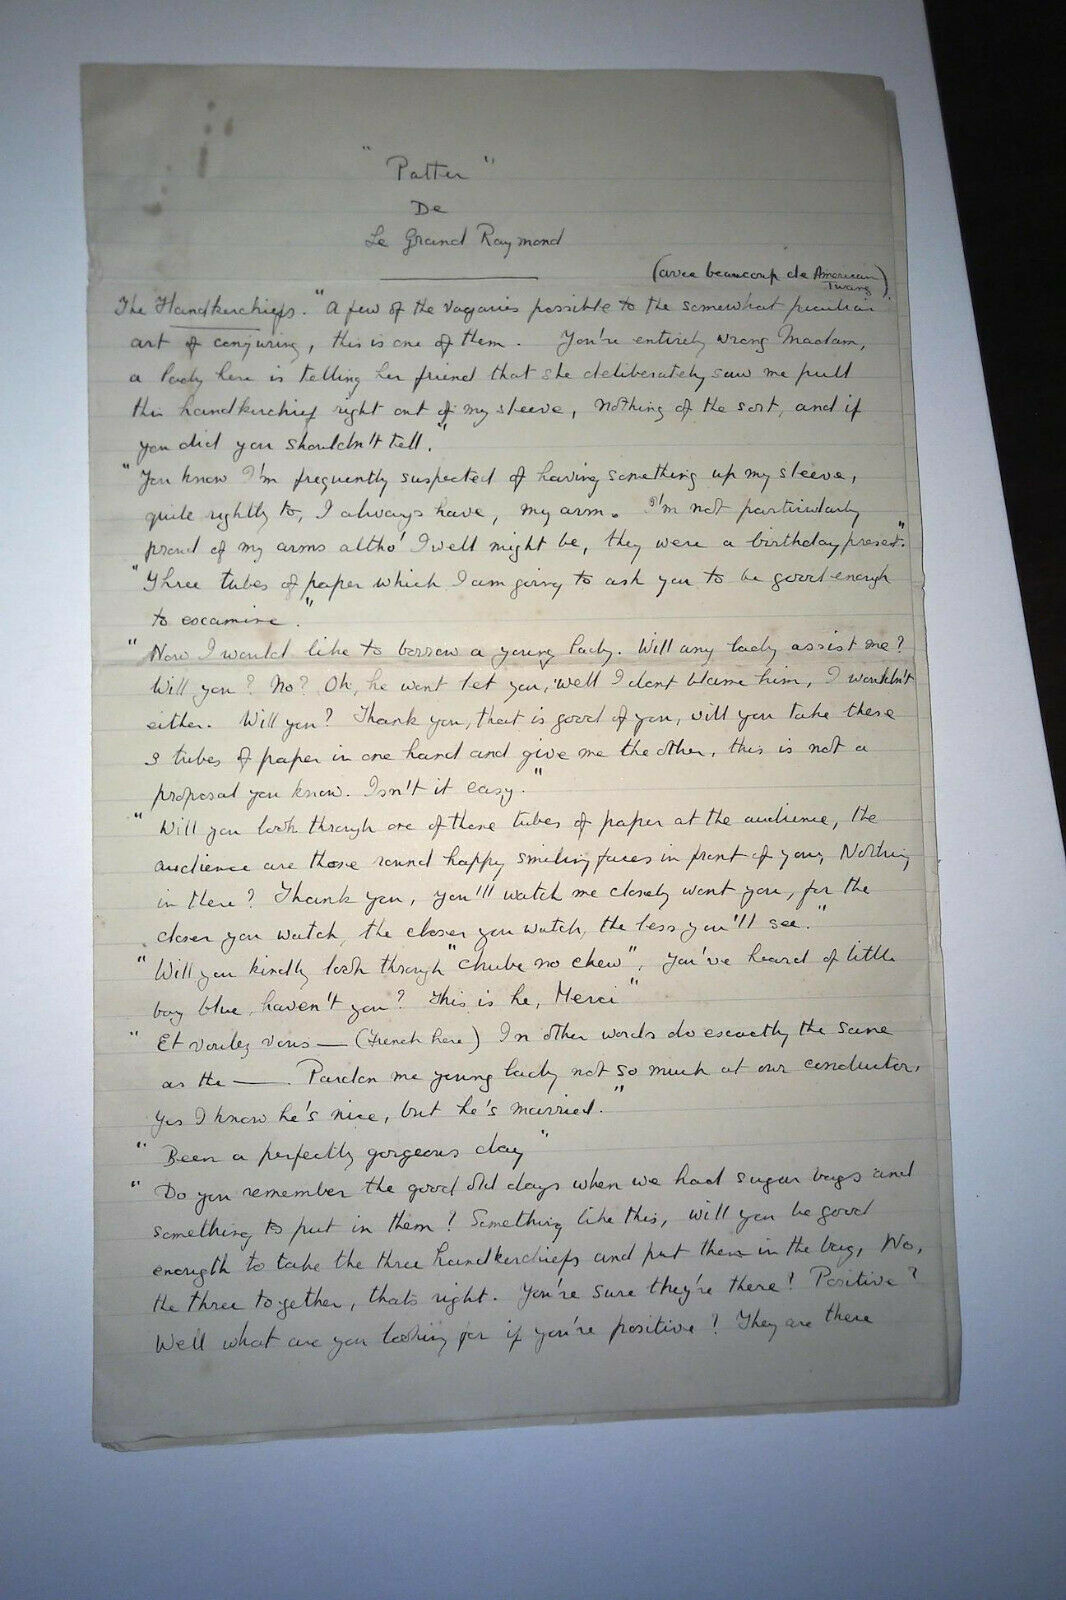 "Patter"
De
Le Grand Raymond
(avec beaucoup de American Twang)
The Handkerchiefs. "A few of the vagaries possible to the somewhat peculiar
art of conjuring, this is one of them. You're entirely wrong Madam,
a lady here is telling her friend that she deliberately saw me pull
this handkerchief right out of my sleeve, nothing of the sort, and if
you did you shouldn't tell."
"You know I'm frequently suspected of having something up my sleeve,
quite rightly to, I always have, my arm. I'm not particularly
proud of my arms altho' I well might be, they were a birthday present."
"Three tubes of paper which I am going to ask you to be good enough
to examine."
"Now I would like to borrow a young lady. Will any lady assist me?
Will you? No? Oh, he wont let you, well I dont blame him, I wouldn't
either. Will you? Thank you, that is good of you, will you take these
3 tubes of paper in one hand and give me the other, this is not a
proposal you know. Isn't it easy."
"Will you look through one of these tubes of paper at the audience, the
audience are those round happy smiling faces in front of you, Nothing
in there? Thank you, you'll watch me closely wont you, for the
closer you watch, the closer you watch, the less you'll see."
"Will you kindly look through "chube no chew", You've heard of little
boy blue, haven't you? This is he, Merci"
"Et voulez vous — (French here) In other words do exactly the same
as the —. Pardon me young lady not so much at our conductor,
yes I know he's nice, but he's married."
"Been a perfectly gorgeous day"
"Do you remember the good old days when we had sugar bags and
something to put in them? Something like this, will you be good
enough to take the three handkerchiefs and put them in the bag, No,
the three together, thats right. You're sure they're there? Positive?
Well what are you looking for if you're positive? They are there